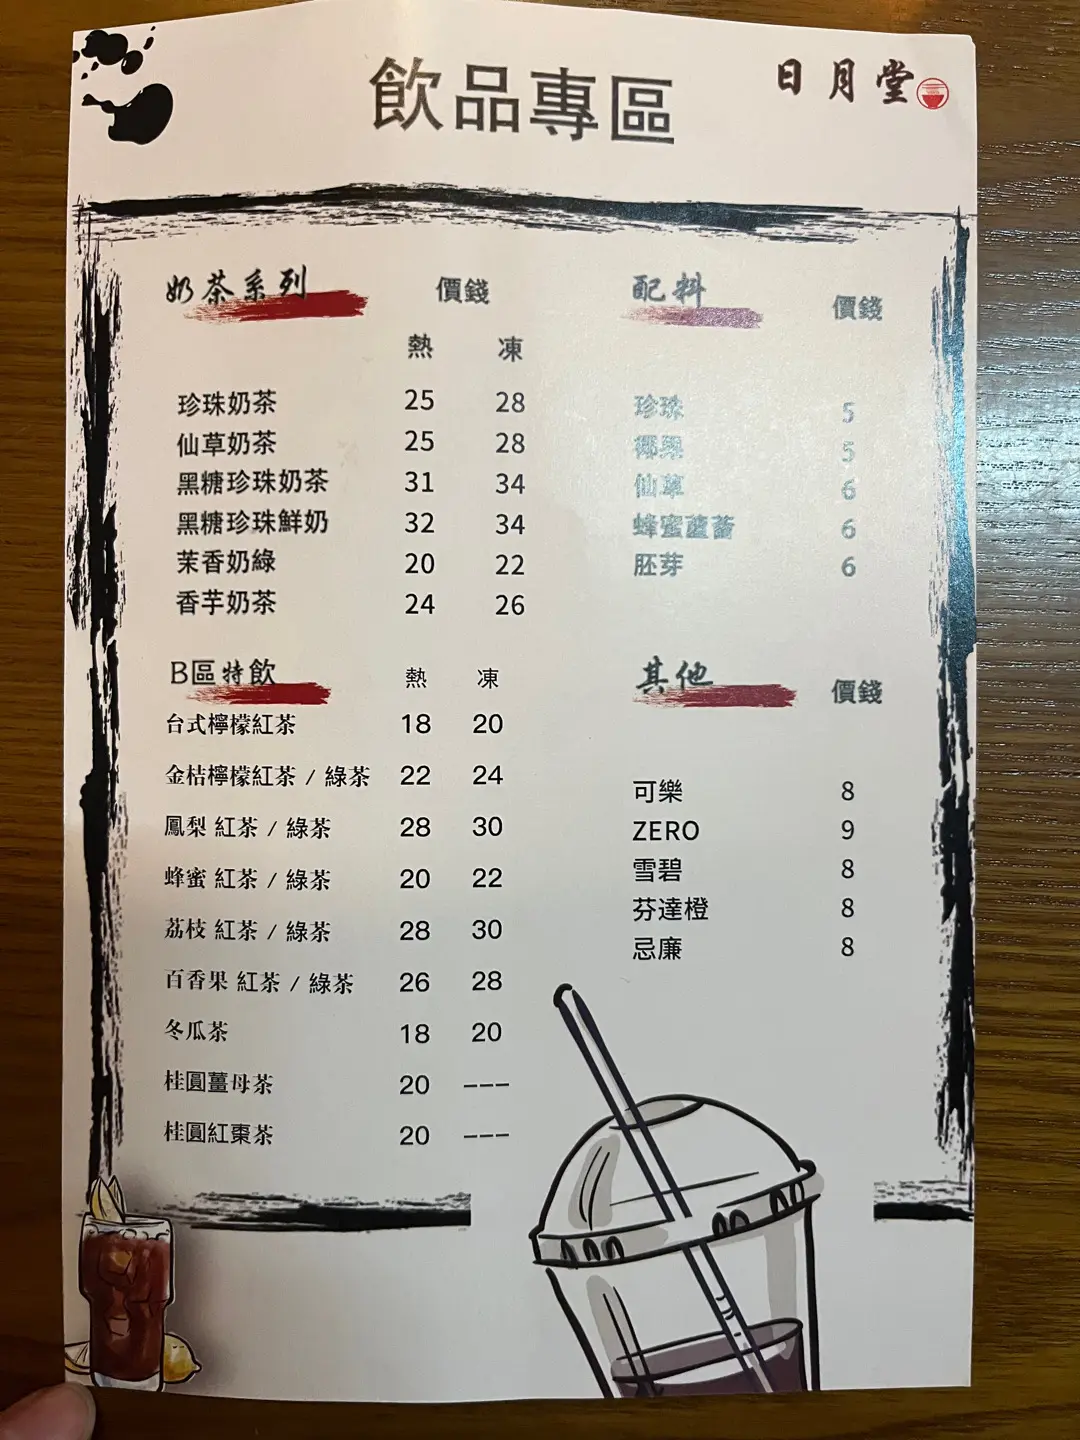 飲品專區
日月堂
奶茶系列 價錢
熱 凍
珍珠奶茶 25 28
仙草奶茶 25 28
黑糖珍珠奶茶 31 34
黑糖珍珠鮮奶 32 34
茉香奶綠 20 22
香芋奶茶 24 26
配料 價錢
珍珠 5
椰果 5
仙草 6
蜂蜜蘆薈 6
胚芽 6
B區特飲 熱 凍
台式檸檬紅茶 18 20
金桔檸檬紅茶 / 綠茶 22 24
鳳梨 紅茶 / 綠茶 28 30
蜂蜜 紅茶 / 綠茶 20 22
荔枝 紅茶 / 綠茶 28 30
百香果 紅茶 / 綠茶 26 28
冬瓜茶 18 20
桂圓薑母茶 20 ---
桂圓紅棗茶 20 ---
其他 價錢
可樂 8
ZERO 9
雪碧 8
芬達橙 8
忌廉 8